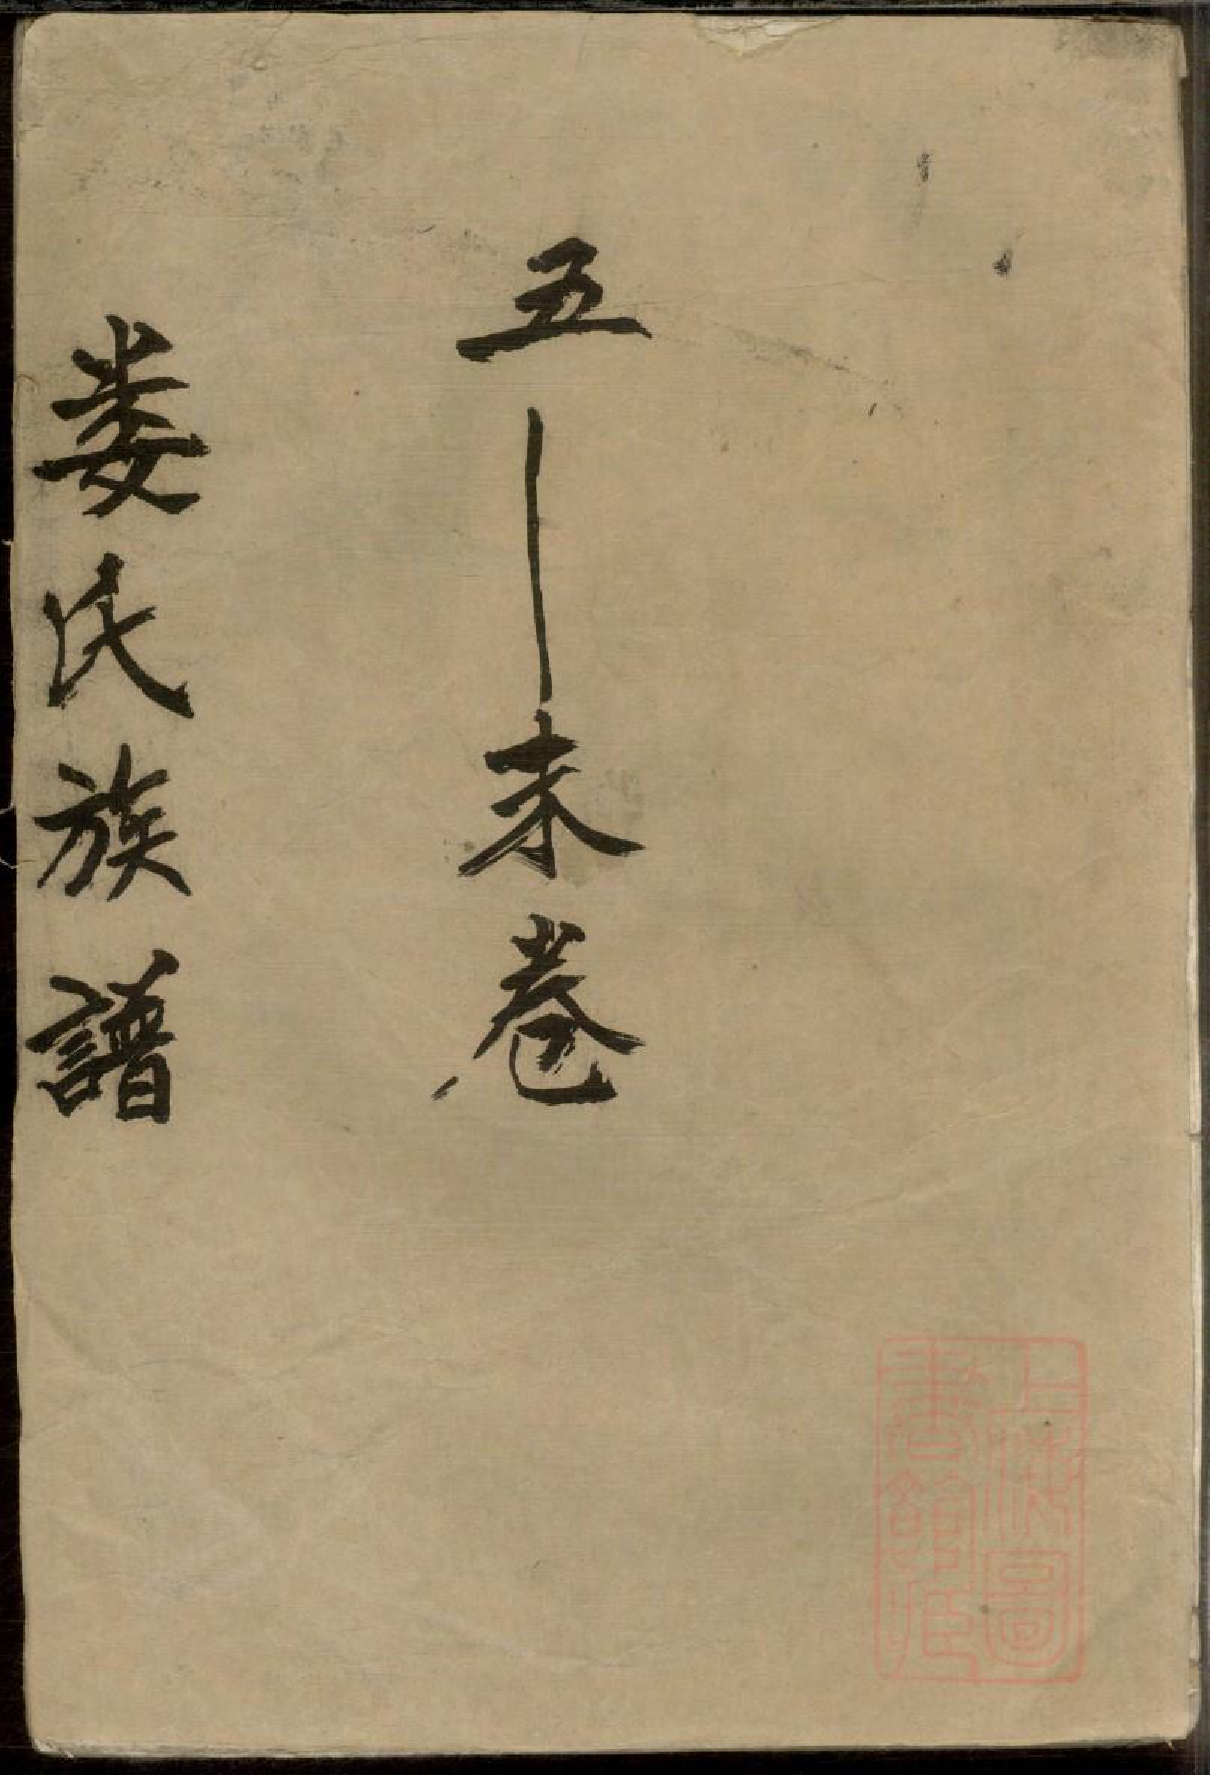 五—末卷
娄氏族譜
上海圖
書館藏